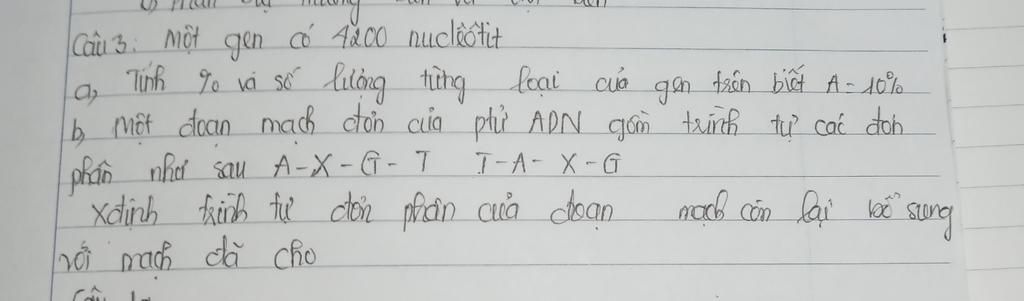 Câu 3: Một gen có 4200 nuclêôtit
a, Tính % và số lượng từng loại của gen trên biết A = 10%
b, Một đoạn mạch đơn của ptử ADN gồm trình tự các đơn
phân như sau A-X-G-T T-A-X-G
Xđịnh trình tự đơn phân của đoạn mạch còn lại bổ sung
với mạch đã cho